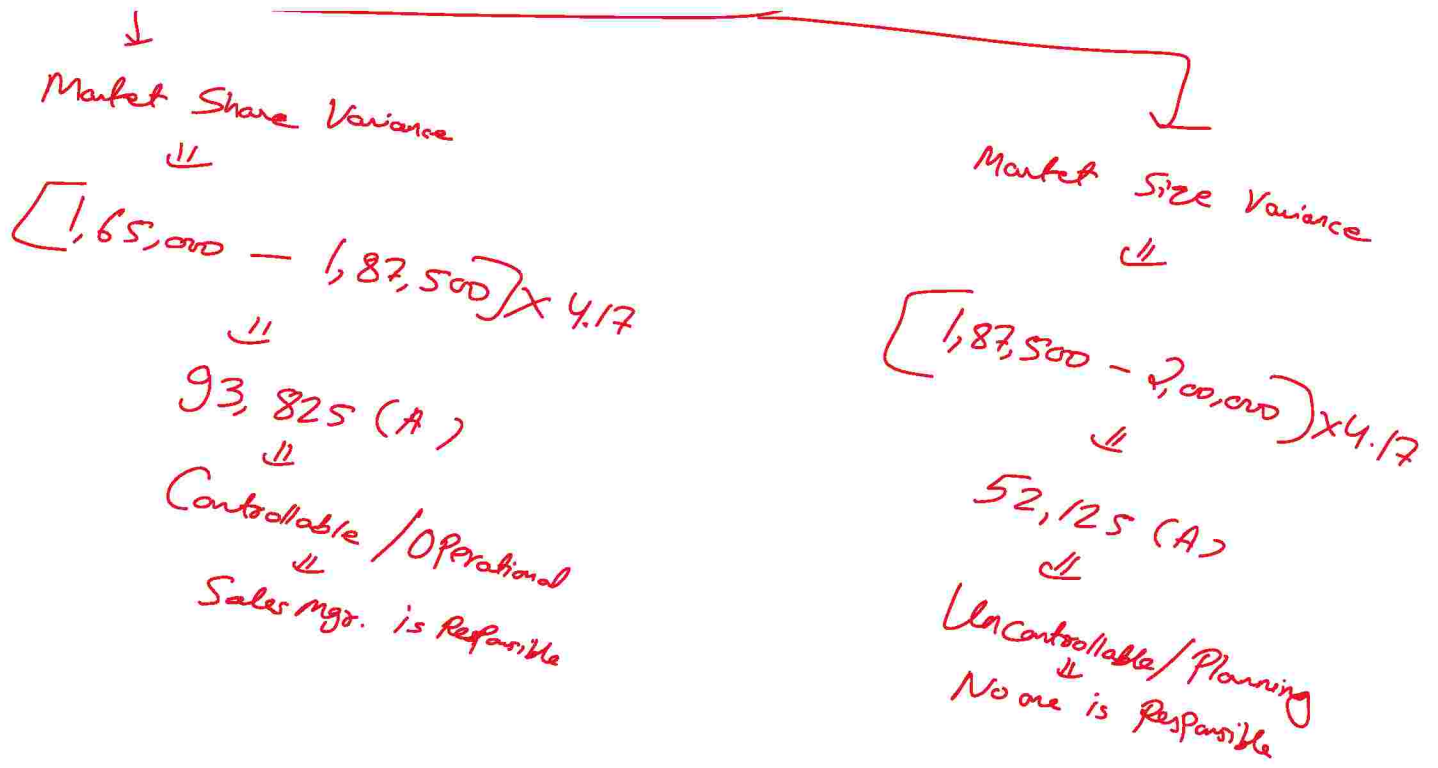 Market Share Variance
[1,65,000 - 1,87,500] x 4.17
93,825 (A)
Controllable / Operational
Sales Mgr. is Responsible
Market Size Variance
[1,87,500 - 2,00,000] x 4.17
52,125 (A)
Uncontrollable / Planning
No one is Responsible